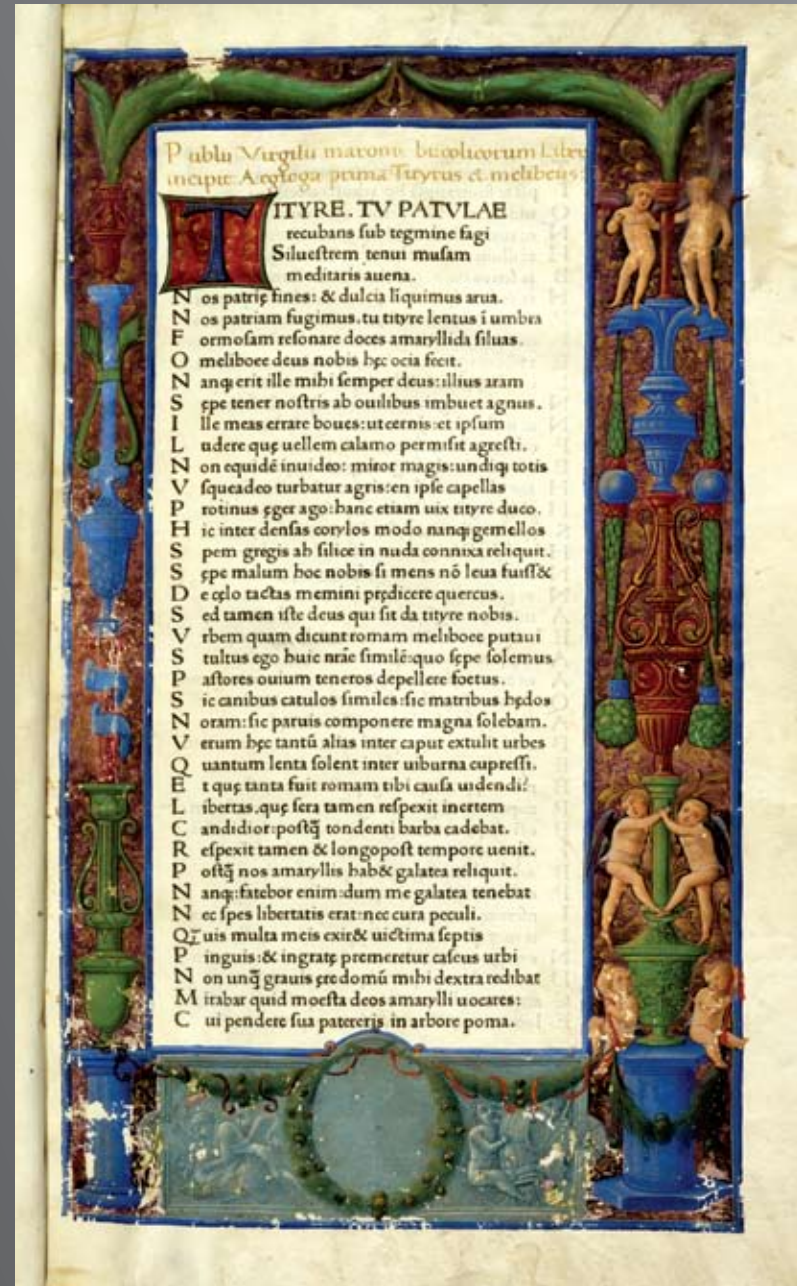 Publii Virgilii maronis bucolicorum Liber
incipit Aegloga prima Tityrus et melibeus
TITYRE. TV PATVLAE
recubans ſub tegmine fagi
Silueſtrem tenui muſam
meditaris auena.
Nos patrię fines: & dulcia liquimus arua.
Nos patriam fugimus. tu tityre lentus ĩ umbra
Formoſam reſonare doces amaryllida ſiluas.
O meliboee deus nobis hęc ocia fecit.
Nanqꝫ erit ille mihi ſemper deus: illius aram
Sępe tener noſtris ab ouilibus imbuet agnus.
Ille meas errare boues: ut cernis: et ipſum
Ludere quę uellem calamo permiſit agreſti.
Non equidẽ inuideo: miror magis: undiqꝫ totis
Vſqueadeo turbatur agris: en ipſe capellas
Protinus ęger ago: hanc etiam uix tityre duco.
Hic inter denſas corylos modo nanqꝫ gemellos
Spem gregis ah ſilice in nuda connixa reliquit.
Sępe malum hoc nobis ſi mens nõ leua fuiſſ&
De cęlo tactas memini prędicere quercus.
Sed tamen iſte deus qui ſit da tityre nobis.
Vrbem quam dicunt romam meliboee putaui
Stultus ego huic nr̃ae ſimilẽ: quo ſępe ſolemus
Paſtores ouium teneros depellere foetus.
Sic canibus catulos ſimiles: ſic matribus hędos
Noram: ſic paruis componere magna ſolebam.
Verum hęc tantũ alias inter caput extulit urbes
Quantum lenta ſolent inter uiburna cupreſſi.
Et quę tanta fuit romam tibi cauſa uidendi?
Libertas. quę ſera tamen reſpexit inertem
Candidior: poſtq̃ tondenti barba cadebat.
Reſpexit tamen & longopoſt tempore uenit.
Poſtq̃ nos amaryllis hab& galatea reliquit.
Nanqꝫ: fatebor enim: dum me galatea tenebat
Nec ſpes libertatis erat: nec cura peculi.
Q̃uis multa meis exir& uictima ſeptis
Pinguis: & ingratę premeretur caſeus urbi
Non unq̃ grauis ęre domũ mihi dextra redibat
Mirabar quid moeſta deos amarylli uocares:
Cui pendere ſua patereris in arbore poma.